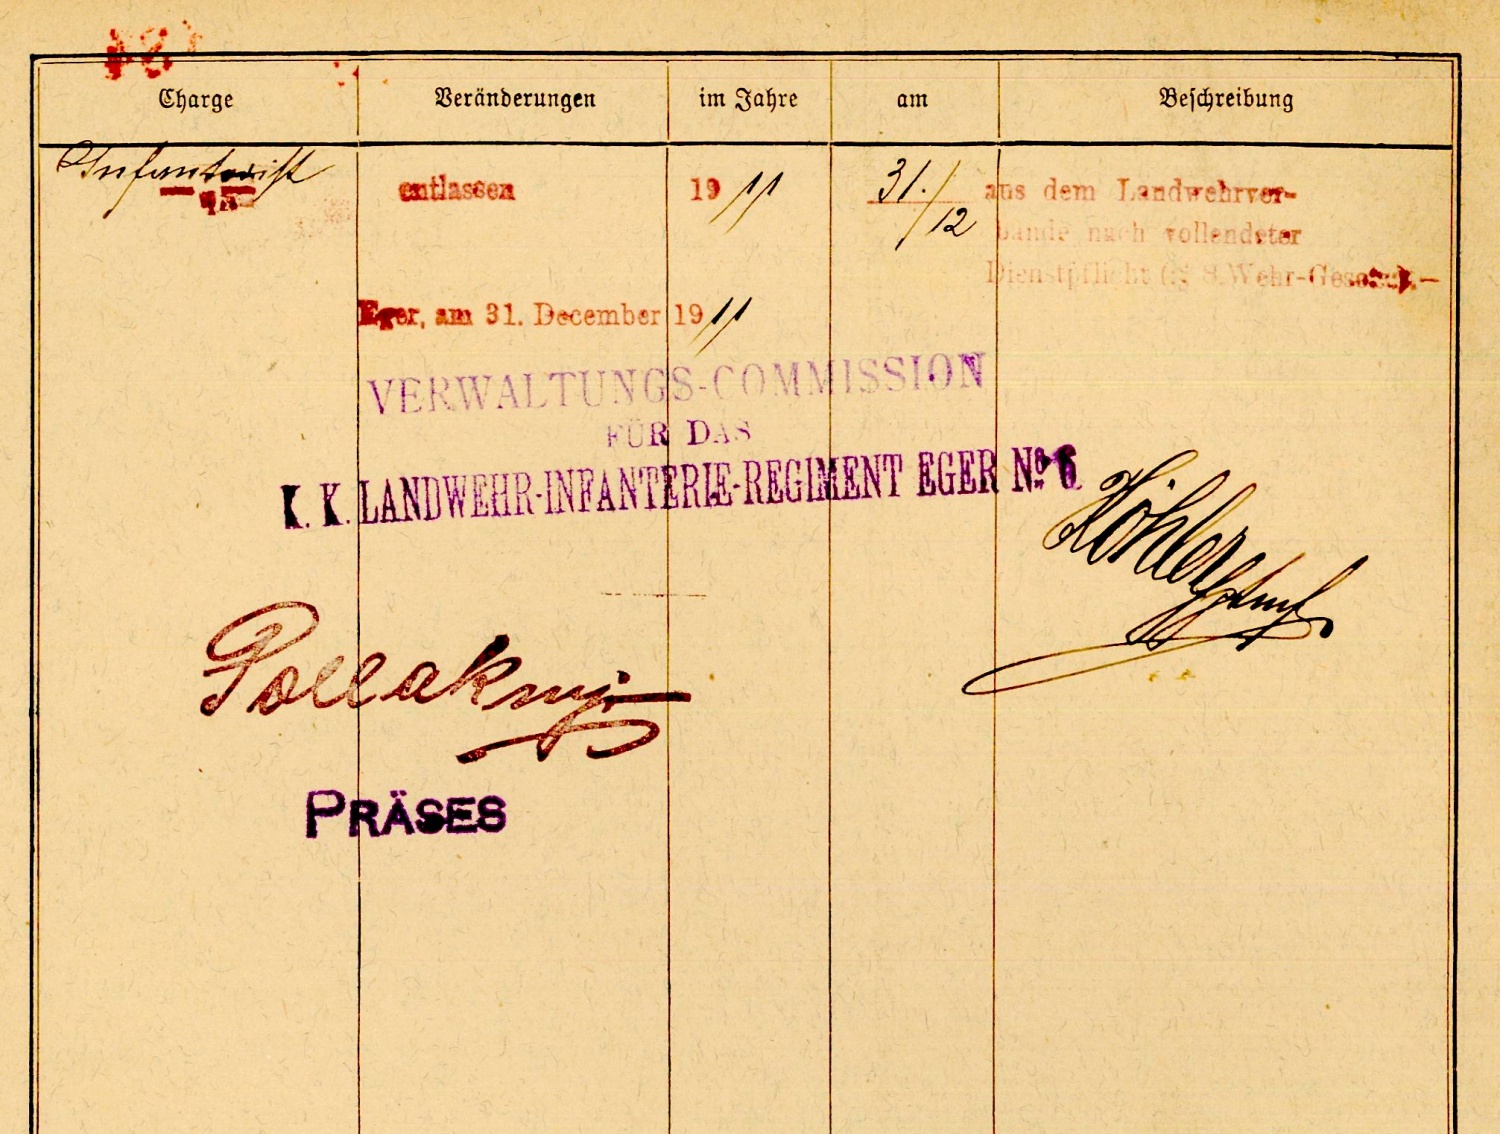 Charge Veränderungen im Jahre am Beschreibung
Infanterist entlassen 1911 31./12 aus dem Landwehrver-
bande nach vollendeter
Dienstpflicht (§ 8. Wehr-Gesetz).—
Eger, am 31. December 1911
VERWALTUNGS-COMMISSION
FÜR DAS
K. K. LANDWEHR-INFANTERIE-REGIMENT EGER No. 6
Köhler
Pollak
PRÄSES